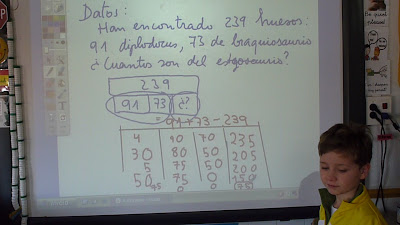 Datos:
Han encontrado 239 huesos:
91 diplodocus, 73 de braquiosaurio
¿Cuantos son del estegosaurio?
239
91 73 ¿?
= 91+73-239
4 90 70 235
30 80 50 205
5 75 50 200
50 75 0 150
45 0 0 75